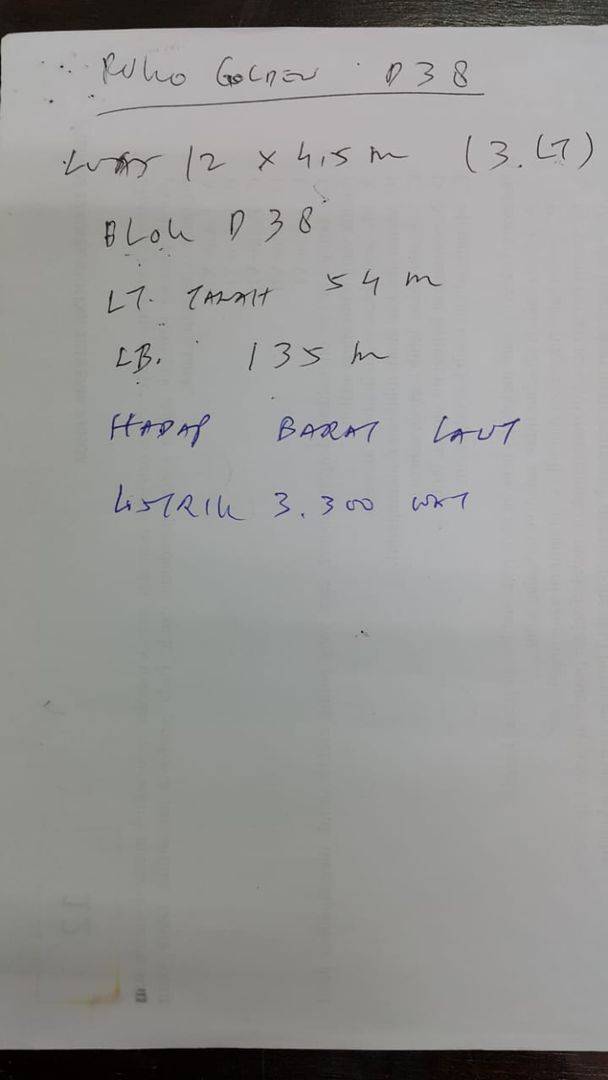 RUKO GOLDEN D38
LUAS 12 x 4,5 m (3.LT)
BLOK D 38
LT. TANAH 54 m
LB. 135 m
HADAP BARAT LAUT
LISTRIK 3.300 WAT